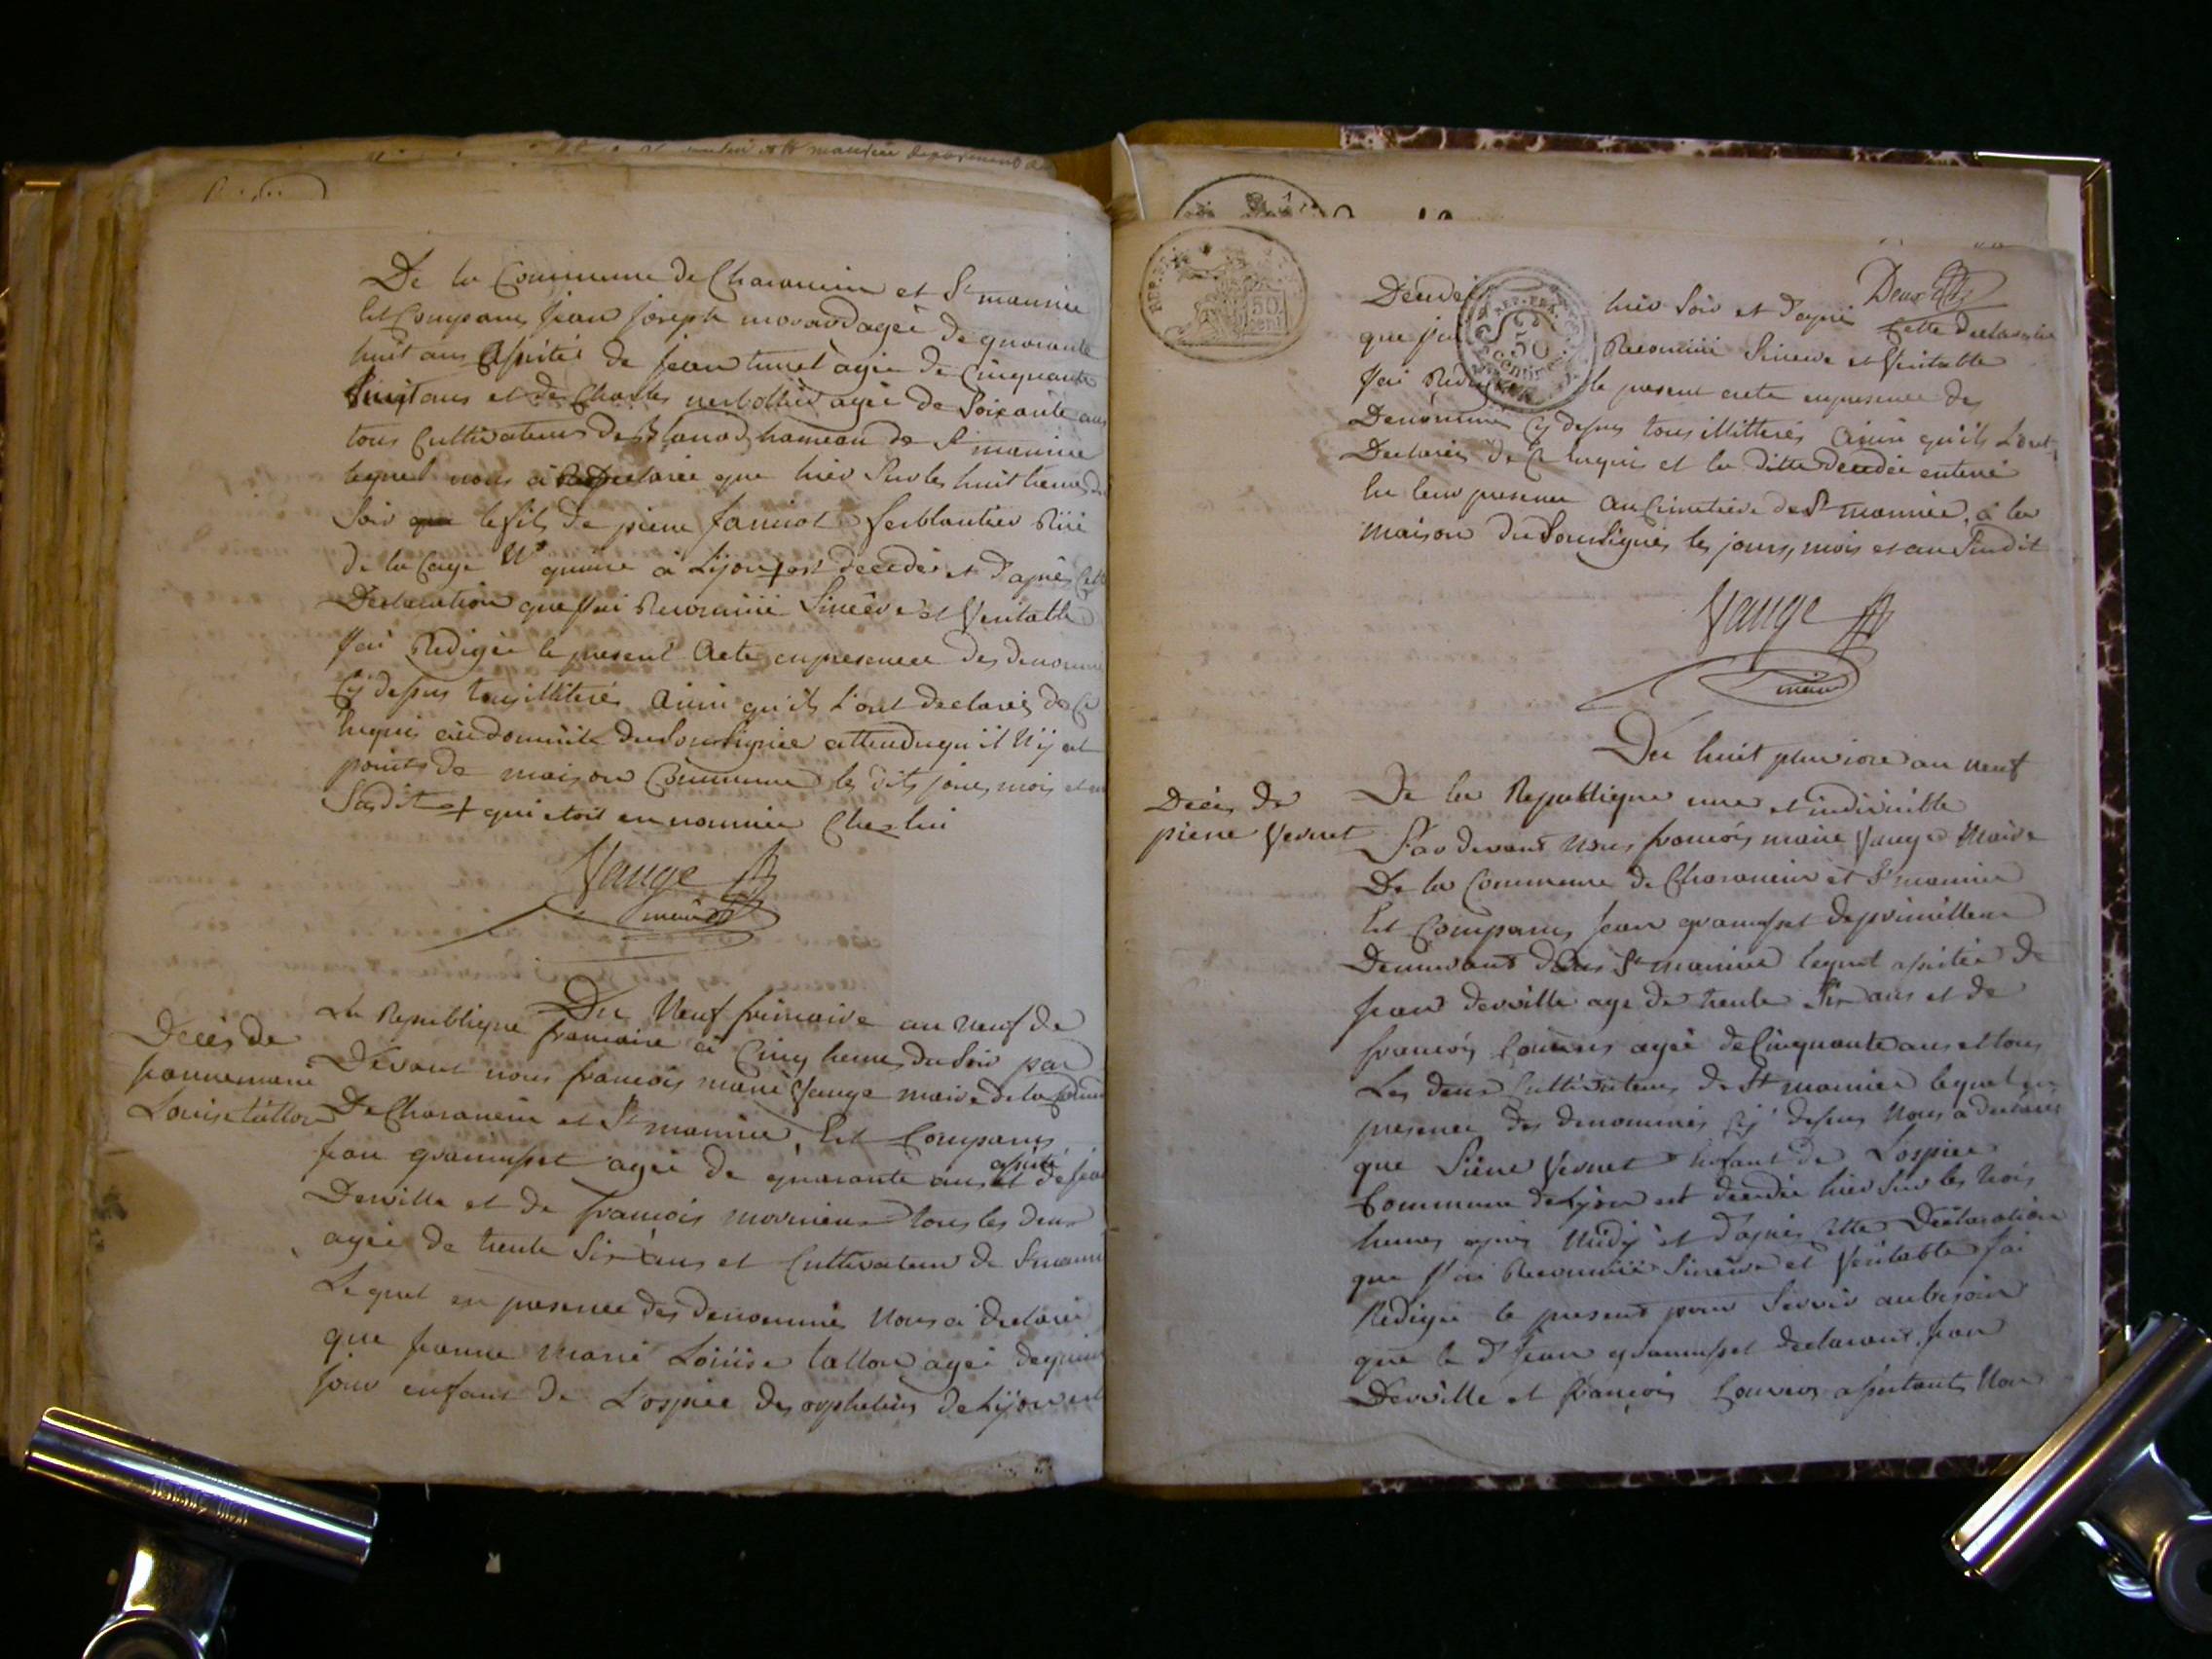 De la Commune de Charancin et St maurice
Est Comparus Jean Joseph morard ageé de quarante
huit ans Assistés de Jean turrel agée de Cinquante
huit ans et de Charles agée de Soixante ans
tous Cultivateurs de hameau de St maurice
lequel nous à Declarée que hier Sur les huit heures du
Soir que le fils de piere Janirot ferblantier Rüe
de la Cage No quinze à Lijon + est decedés et d'aprés Cette
Declaration que J'ai Reconnüe Sincére et Veritable
J'ai Redigée le present Acte en presence des denommé
Cÿ depus tous illiterés Ainsi qu'ils L'ont declarés de Ce
Requis au domicile du Sousignée attendu qu'il N'ij at
points de maison Commune les dits jours, mois et an
Susdit + qui étoit en nourrice Chez lui
Vauge
maire
Du Neuf frimaire an neuf de
La Republique francaise à Cinq heures du Soir par
Decés de
Jeanne marie
Louise tallon
Devant nous francois marie Vauge maire de la Commune
De Charancin et St maurice, Est Comparus
Jean gramusset ageé de quarante ans et assisté de Jean
Derville et de francois morinieux tous les deux
agée de trente Six ans et Cultivateurs de St maurice
Lequel en presence des denommés Nous à declaré
que Jeanne Marie Loüise tallon ageé de quinze
jour enfant de L'ospice des orphelins de Lijon est
Deux
Decedeé hier Soir et d'aprés Cette declaration
que J'ai Reconnüe Sincere et Veritable
J'ai Redigé le present acte en presence des
Denommés Cÿ depus tous illitterés Ainsi qu'ils L'ont
Declarés de Ce Requis et la ditte decedée enterré
En leur presence au Cimetiére de St maurice, à la
Maison du Sousignés les jours, mois et an Susdit
REP. FRA.
50
cent.
REP. FRA.
50
Centimes
Vauge
maire
Du huit pluviose an neuf
Decés de
piere Vernet
De la Republique une et indivisible
Par devant Nous francois marie Vauge Maire
De la Commune de Charancin et St maurice
Est Comparus Jean gramusset
Demeurant dans St maurice lequel assistée de
Jean derville age de trente Six ans et de
francois Louvres agée de Cinquante ans et tous
Les deux Cultivateurs de St maurice lequel en
presence des denommés Cÿ depus Nous a declarée
que Piere Vernet Enfant de L'ospice
Commune de Lÿon est decedée hier Sur les trois
heures aprés Midÿ et d'aprés Cette Declaration
que J'ai Reconnüe Sincére et Veritable J'ai
Redigée le present pour Servir au besoin
que le d Jean gramusset declarant, Jean
Derville et francois Louvres assistants Non